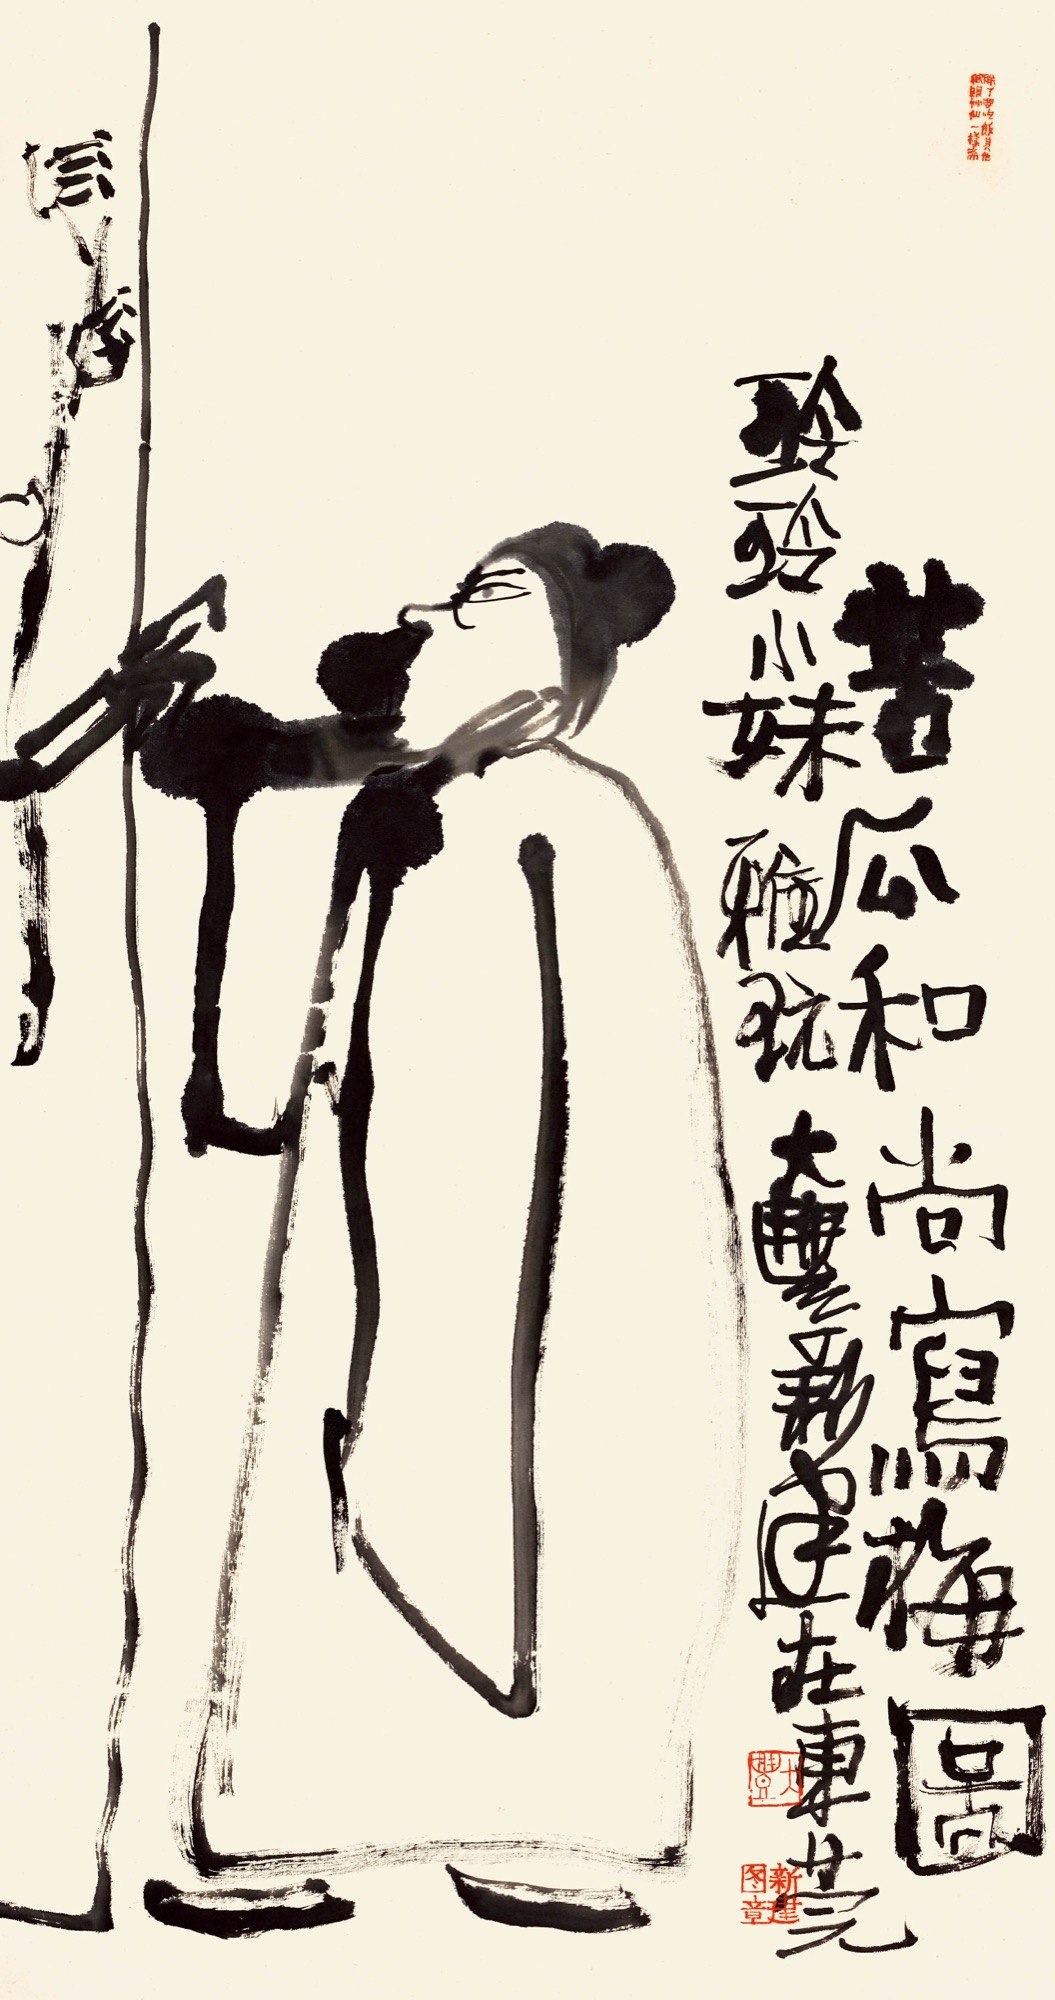 苦瓜和尚寫梅圖
玲玲小妹雅玩
大豐新建在東莞
大豐
新建图章